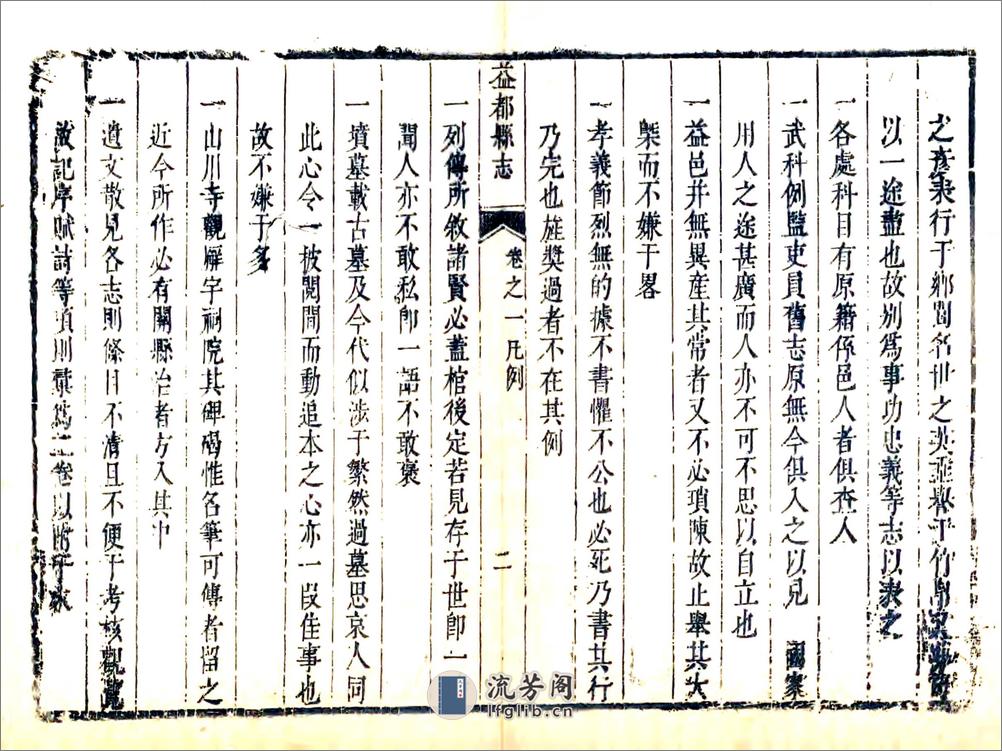 之彥表行于鄉閭名世之英垂於于竹帛
以一途盡也故別爲事功忠義等志以表之
一各處科目有原籍係邑人者俱查入
一武科例監吏員舊志原無今俱入之以見 國家
用人之途甚廣而人亦不可不思以自立也
一益邑并無異産其常者又不必瑣陳故止舉其大
槩而不嫌于畧
一孝義節烈無的據不書懼不公也必死乃書其行
乃完也旌獎過者不在其例
益都縣志 卷之一 凡例 二
一列傳所敘諸賢必蓋棺後定若見存于世卽一
聞人亦不敢私卽一語不敢褒
一墳墓載古墓及今代似涉于繁然過墓思哀人同
此心令一披閱間而動追本之心亦一段佳事也
故不嫌于多
一山川寺觀廨宇祠院其碑碣惟名筆可傳者留之
近今所作必有關縣治者方入其中
一遺文散見各志則條目不清且不便于考核觀覽
故記序賦詩等項則彙爲二卷以附于末
流芳阁
lfglib.cn